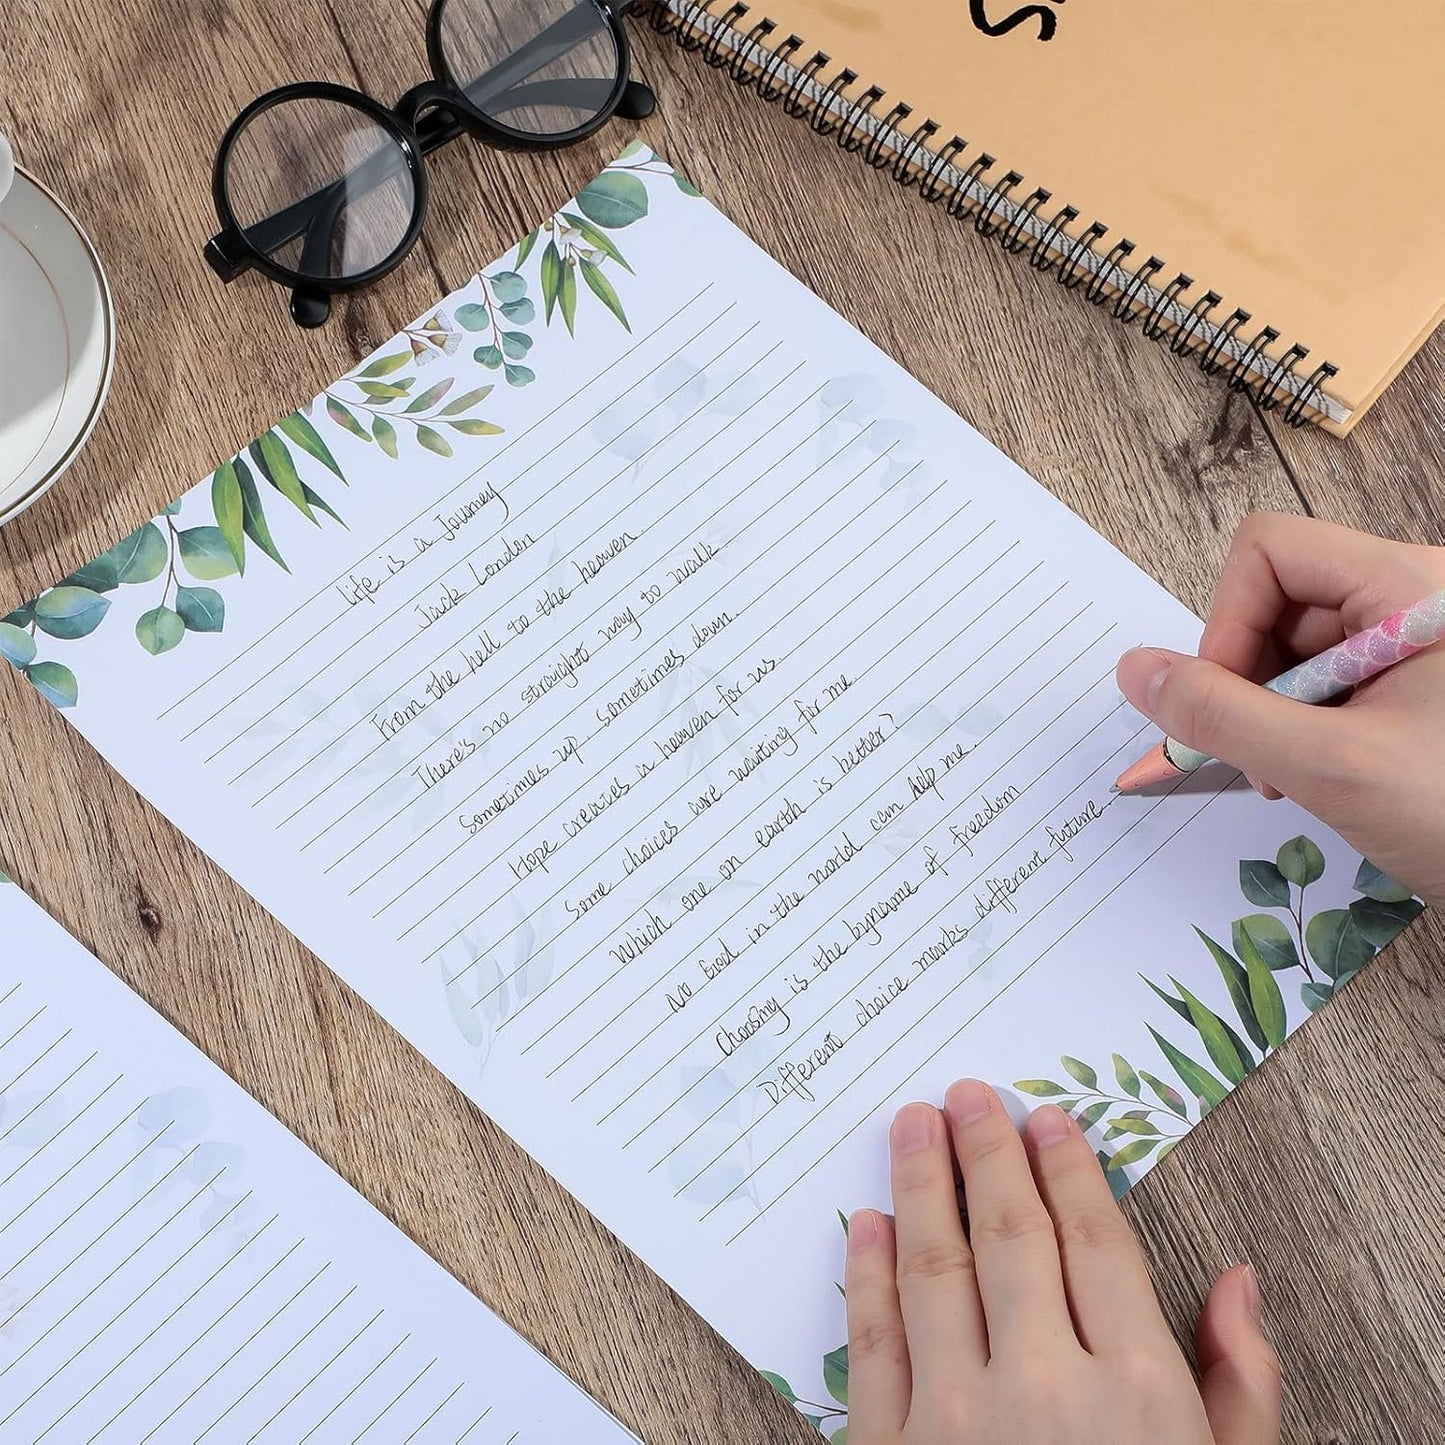 Life is a Journey
Jack London
From the hell to the heaven
There's no straight way to walk.
Sometimes up. sometimes down.
Hope creates a heaven for us
Some choices are waiting for me.
Which one on earth is better?
No God in the world can help me.
Choosing is the byname of freedom
Different choice marks different future.